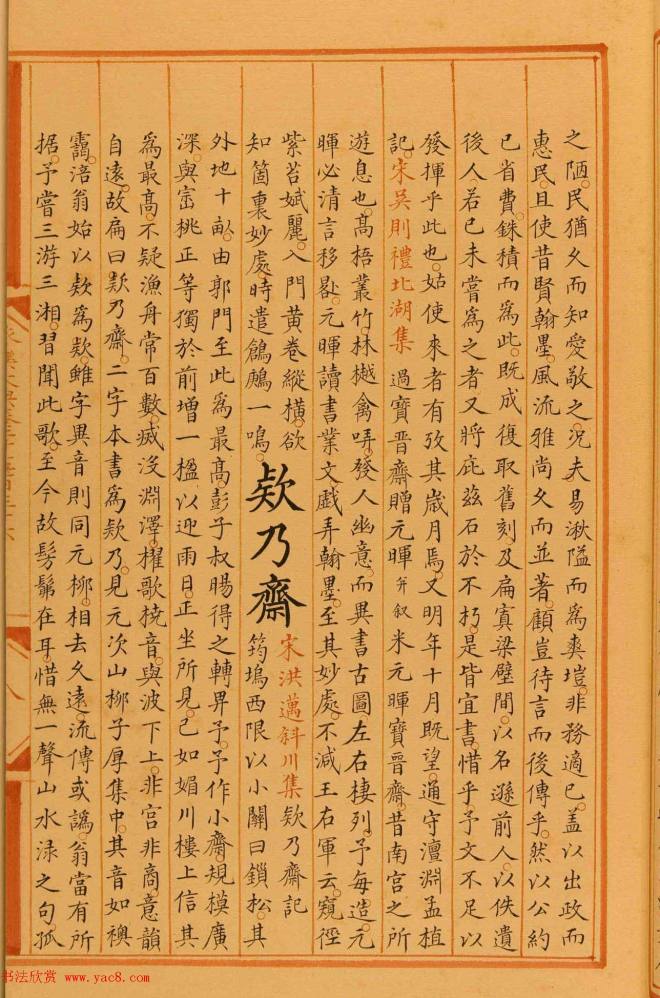 之陋。民猶久而知愛敬之。況夫易湫隘而爲爽塏。非務適己。蓋以出政而
惠民。且使昔賢翰墨。風流雅尚久而並著。顧豈待言而後傳乎。然以公約
已省費。銖積而爲此。既成復取舊刻。及扁寘梁壁間。以名遜前人。以佚遺
後人。若已未嘗爲之者。又將庇茲石於不朽。是皆宜書。惜乎予文不足以
發揮乎此也。姑使來者有攷其歲月焉。又明年十月既望。通守澶淵孟植
記。宋吳則禮北湖集 過寶晉齋贈元暉并叙 米元暉寶晉齋。昔南宮之所
遊息也。高梧叢竹。林樾禽哢。發人幽意。而異書古圖。左右棲列。予每造元
暉必清言移晷。元暉讀書業文。戲弄翰墨。至其妙處。不減王右軍云。窺徑
紫苔斌麗。入門黃卷縱橫。欲
知箇裏妙處。時遣鶬鶊一鳴。
欸乃齋
宋洪邁斜川集 欸乃齋記
筠塢西限以小關曰鎖松。其
外地十畝。由郭門至此爲最高。彭子叔暘得之轉畀予。予作小齋。規模廣
深。與窑桃正等。獨於前增一楹以迎雨日。正坐所見。已如媚川樓上信其
爲最高。不疑漁舟常百數。滅沒淵澤。櫂歌橈音。與波下上。非宮非商。意韻
自遠。故扁曰欸乃齋。二字本書爲欸乃。見元次山柳子厚集中。其音如襖
靄。涪翁始以欸爲欵。雖字異音則同。元柳。相去久遠。流傳或譌。翁當有所
据。予嘗三游三湘。習聞此歌。至今故髣髴在耳。惜無一聲山水淥之句。孤
书法欣赏 www.yac8.com